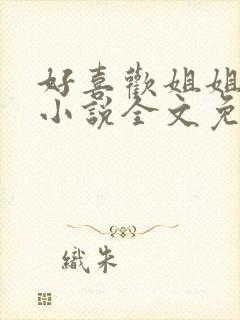 好喜歡姐姐
小說全文免
織朱